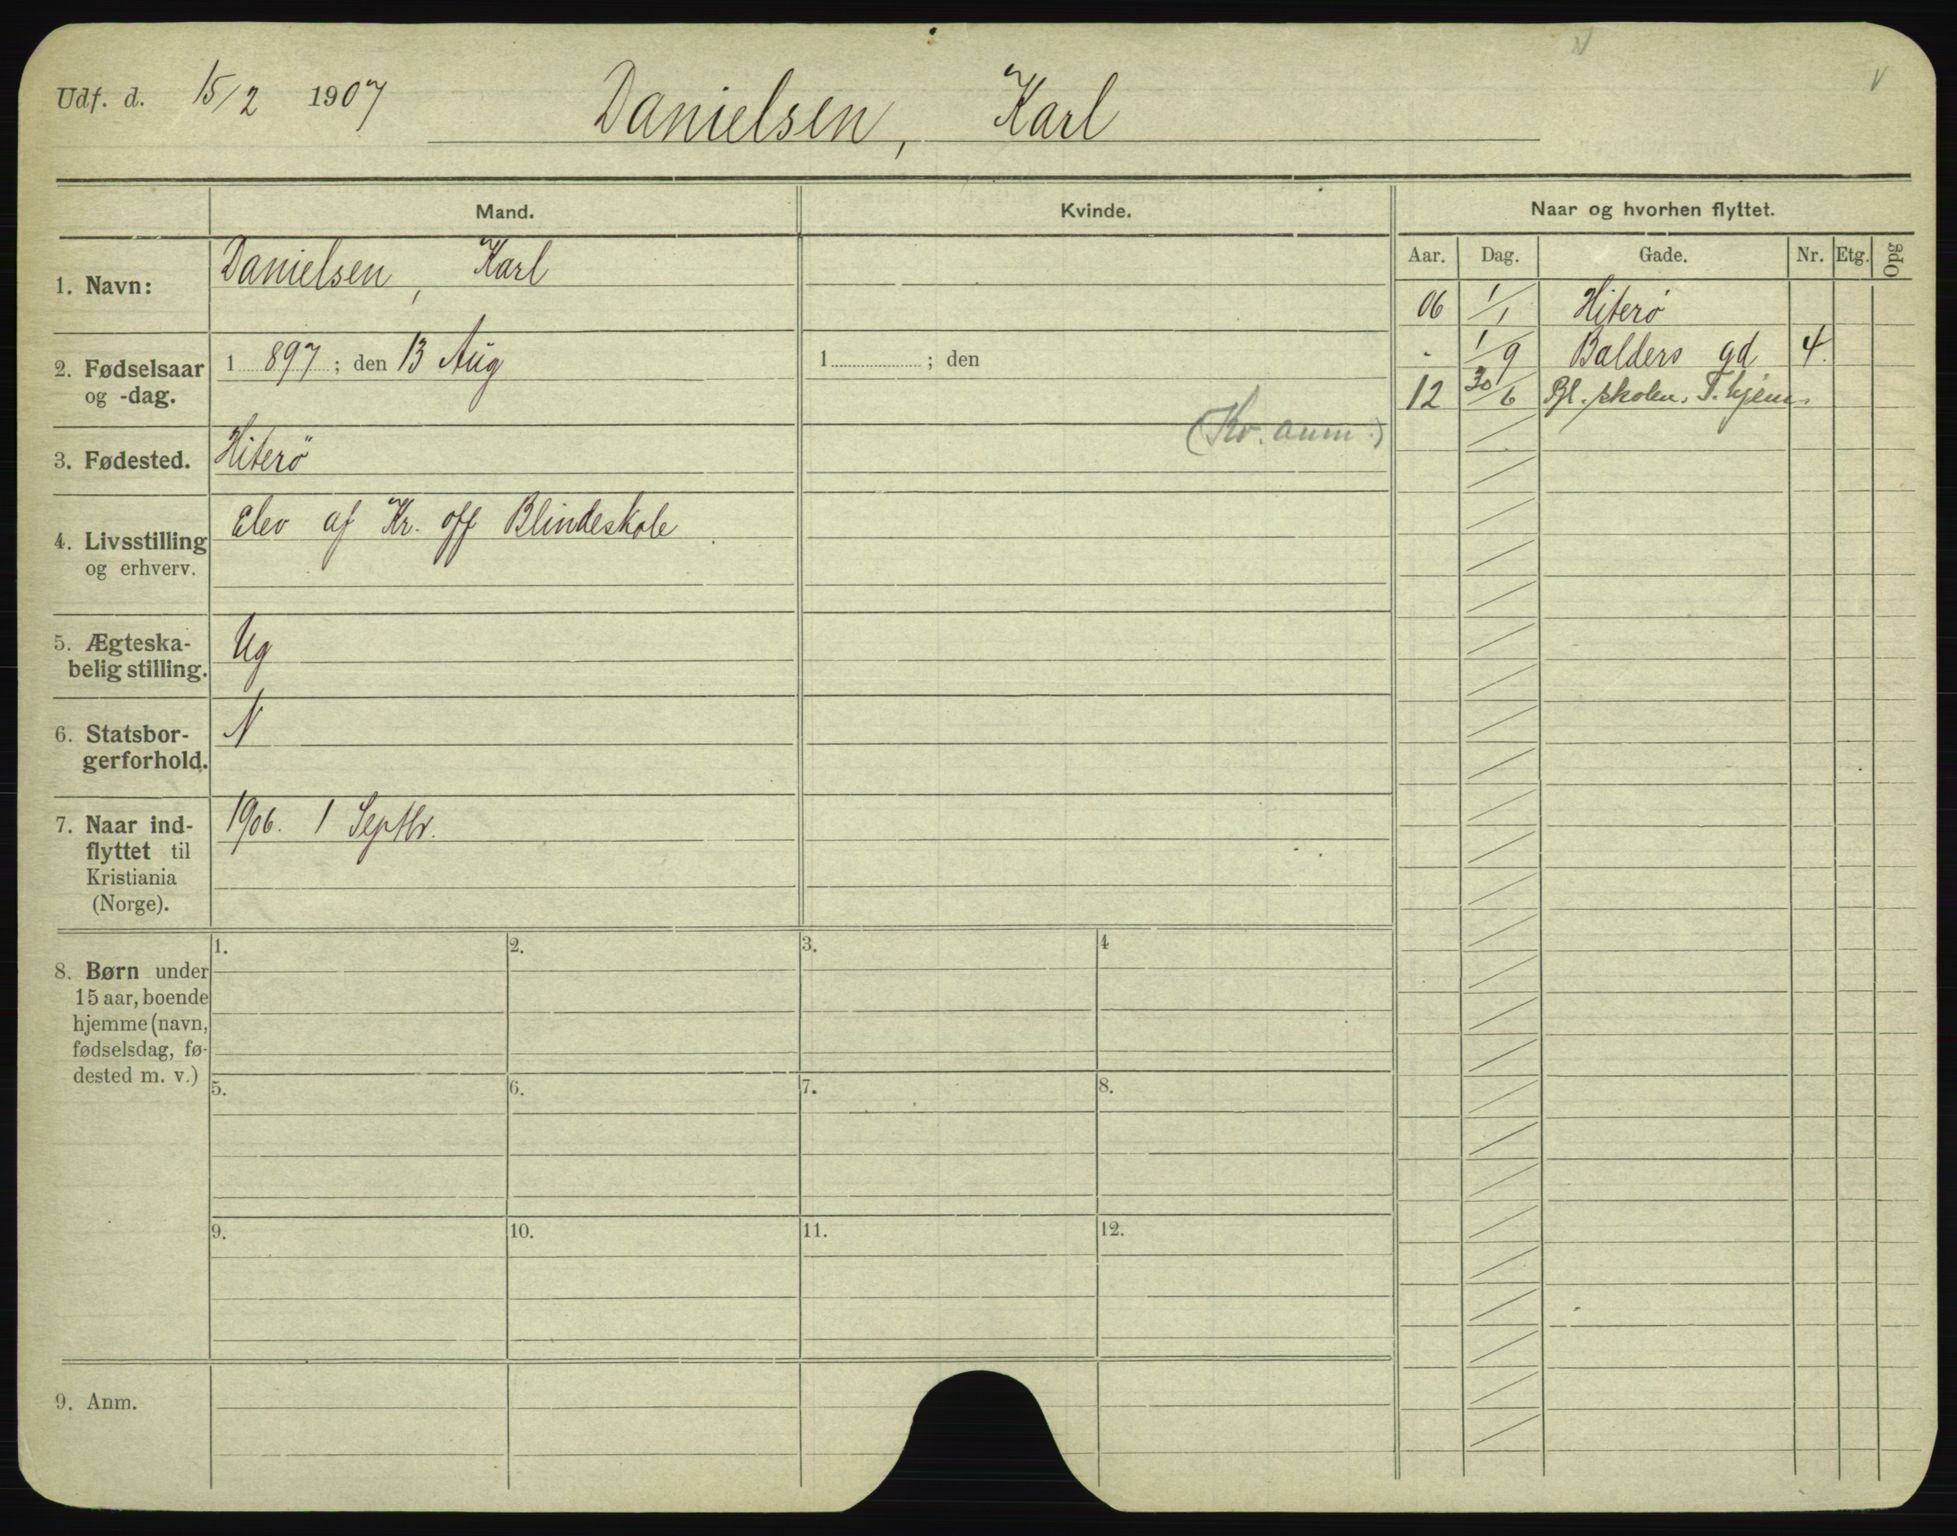 Udf. d. 15/2 1907 Danielsen, Karl
Mand. Kvinde. Naar og hvorhen flyttet.
Aar. Dag. Gade. Nr. Etg. Opg
1. Navn: Danielsen, Karl
06 1/1 Hiterø
2. Fødselsaar og -dag. 1 897 ; den 13 Aug 1 ; den
- 1/9 Balders gd 4.
12 30/6 Bl. skolen, T.hjem.
(Kv. anm.)
3. Fødested. Hiterö
4. Livsstilling og erhverv. Elev af Kr. off Blindeskole
5. Ægteska-
belig stilling. Ug
6. Statsbor-
gerforhold. N
7. Naar ind-
flyttet til
Kristiania
(Norge). 1906. 1 Septbr.
8. Børn under
15 aar, boende
hjemme (navn,
fødselsdag, fø-
dested m. v.)
1. 2. 3. 4
5. 6. 7. 8.
9. 10. 11. 12.
9. Anm.